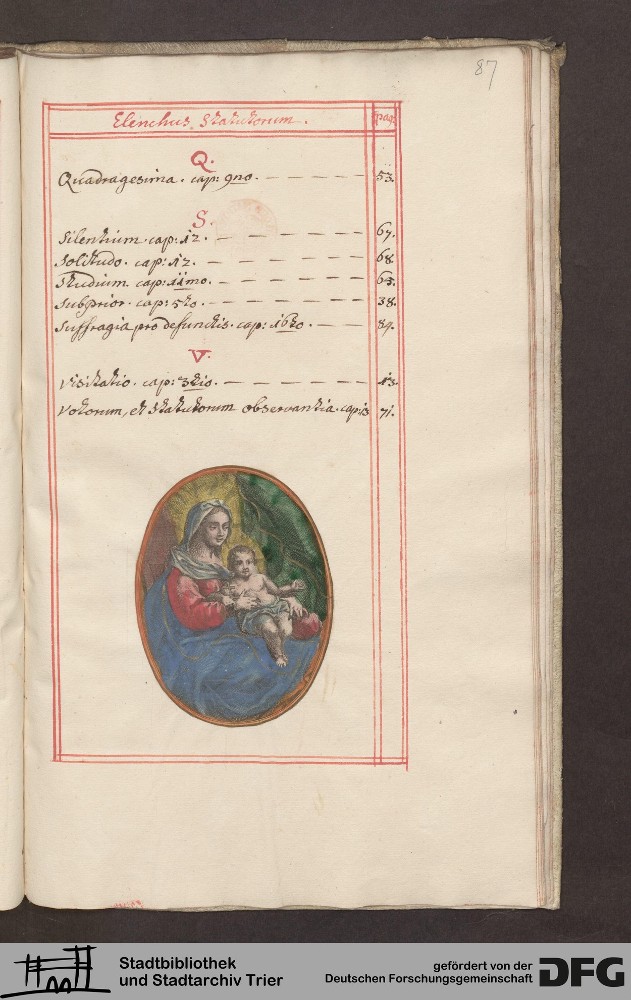 87
Elenchus Statutorum. pag.
Q.
Quadragesima. cap: 9no. 53.
S.
Silentium. cap: 12. 67.
Solitudo. cap: 12. 68.
Studium. cap: 11mo. 63.
Subprior. cap: 5to. 38.
Suffragia pro defunctis. cap: 16to. 84.
V.
Visitatio. cap: 3tio. 13.
Votorum, et Statutorum observantia. cap: 13 71.
Stadtbibliothek
und Stadtarchiv Trier
gefördert von der
Deutschen Forschungsgemeinschaft
DFG